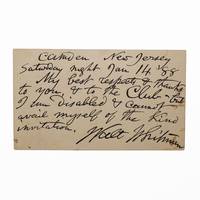 Camden New Jersey
Saturday night Jan 14 '88
My best respects & thanks
to you, & to the Club - but
I am disabled & cannot
avail myself of the kind
invitation.
Walt Whitman